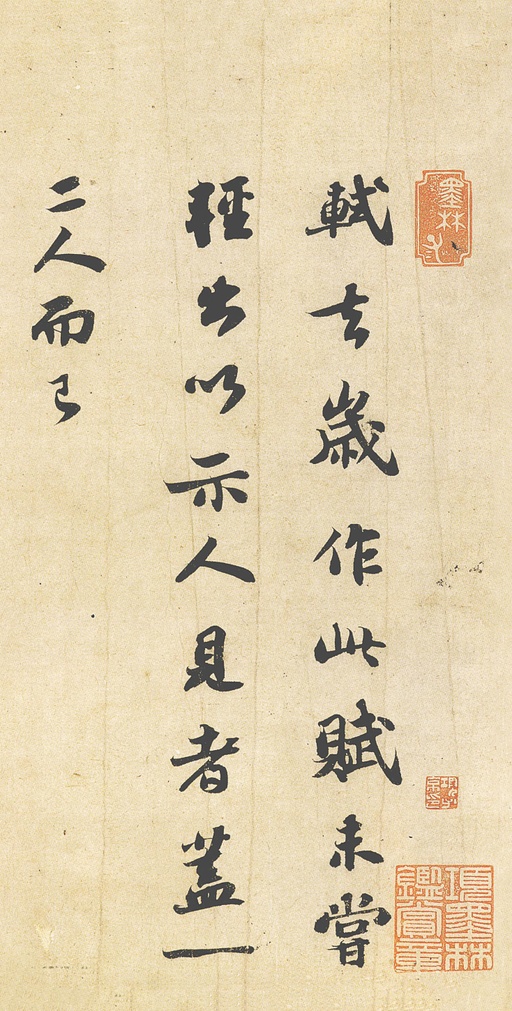 軾去歲作此賦未嘗
輕出以示人見者蓋一
二人而已
項墨林鑑賞章